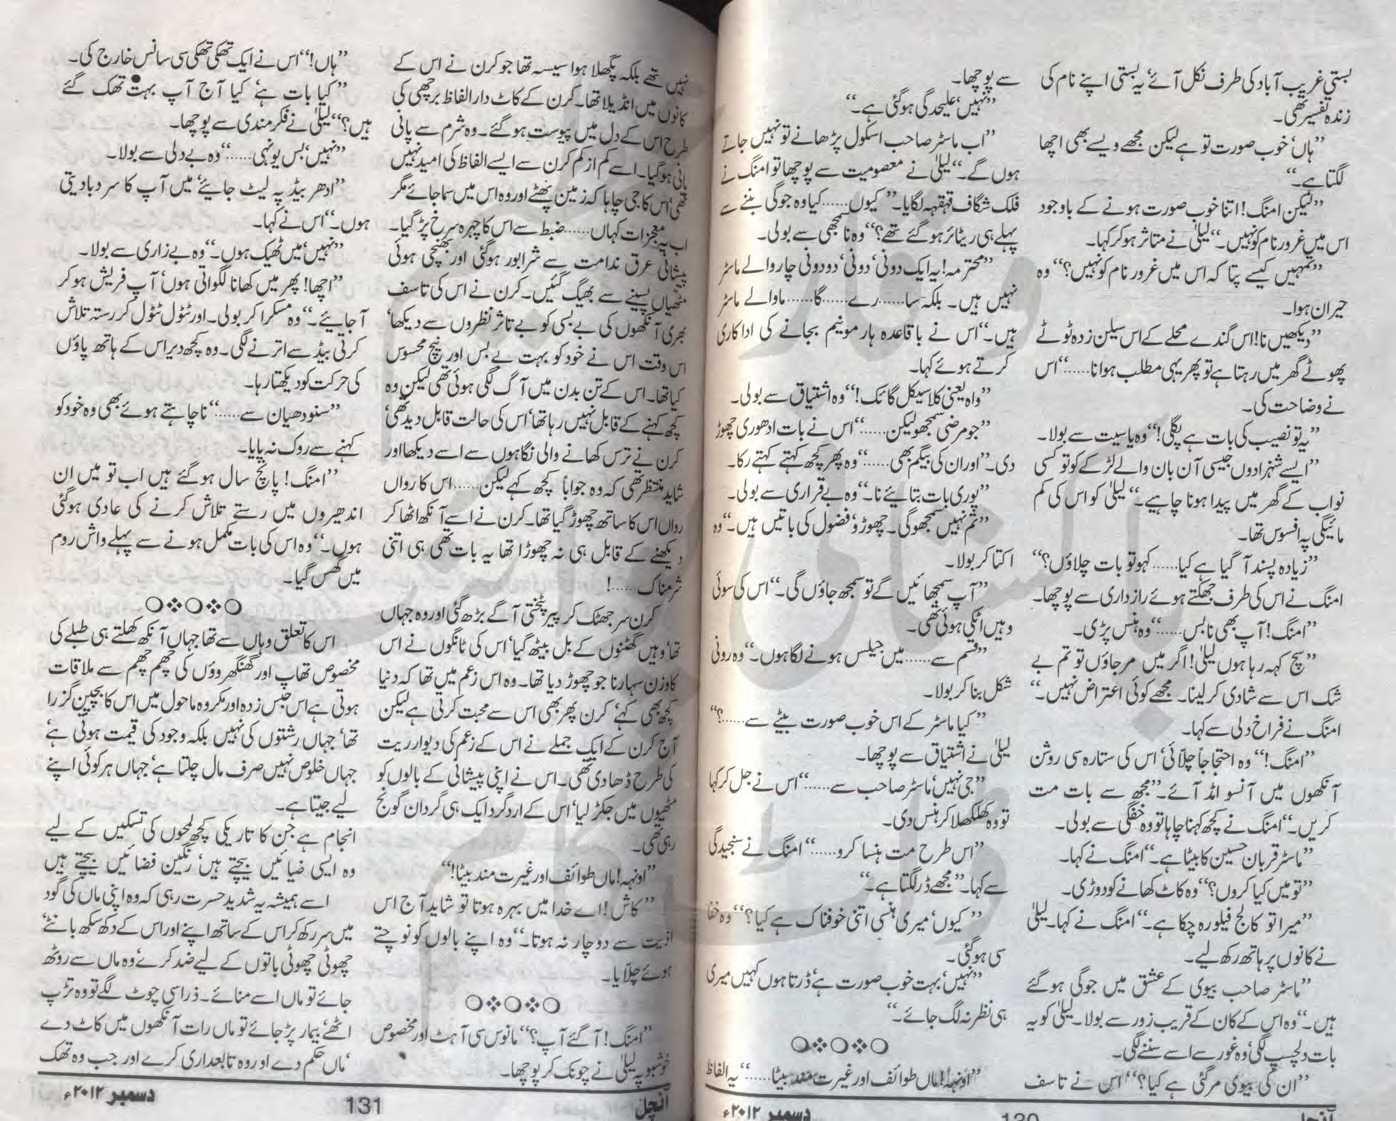 بستی غریب آباد کی طرف نکل آئے' یہ بستی اپنے نام کی
زندہ تفسیر تھی۔
”ہاں' خوب صورت تو ہے لیکن مجھے ویسے بھی اچھا
لگتا ہے۔“
”لیکن امنگ! اتنا خوب صورت ہونے کے باوجود
اس میں غرور نام کو نہیں۔“ لیلیٰ نے متاثر ہو کر کہا۔
”تمہیں کیسے پتا کہ اس میں غرور نام کو نہیں؟“ وہ
حیران ہوا۔
”دیکھیں نا! اس گندے محلے کے اس سیلن زدہ ٹوٹے
پھوٹے گھر میں رہتا ہے تو پھر یہی مطلب ہوا نا......“ اس
نے وضاحت کی۔
”یہ تو نصیب کی بات ہے پگلی!“ وہ یاسیت سے بولا۔
”ایسے شہزادوں جیسی آن بان والے لڑکے کو تو کسی
نواب کے گھر میں پیدا ہونا چاہیے۔“ لیلیٰ کو اس کی کم
مائیگی پہ افسوس تھا۔
”زیادہ پسند آ گیا ہے کیا...... کہو تو بات چلاؤں؟“
امنگ نے اس کی طرف جھکتے ہوئے رازداری سے پوچھا۔
”امنگ! آپ بھی نا بس......“ وہ ہنس پڑی۔
”سچ کہہ رہا ہوں لیلیٰ! اگر میں مر جاؤں تو تم بے
شک اس سے شادی کر لینا۔ مجھے کوئی اعتراض نہیں۔“
امنگ نے فراخ دلی سے کہا۔
”امنگ!“ وہ احتجاجاً چلّائی' اس کی ستارہ سی روشن
آنکھوں میں آنسو امڈ آئے۔ ”مجھ سے بات مت
کریں۔“ امنگ نے کچھ کہنا چاہا تو وہ خفگی سے بولی۔
”ماسٹر قربان حسین کا بیٹا ہے۔“ امنگ نے کہا۔
”تو میں کیا کروں؟“ وہ کاٹ کھانے کو دوڑی۔
”میرا تو کالج فیلو رہ چکا ہے۔“ امنگ نے کہا۔ لیلیٰ
نے کانوں پر ہاتھ رکھ لیے۔
”ماسٹر صاحب بیوی کے عشق میں جوگی ہو گئے
ہیں۔“ وہ اس کے کان کے قریب زور سے بولا۔ لیلیٰ کو یہ
بات دلچسپ لگی' وہ غور سے اسے سننے لگی۔
”ان کی بیوی مر گئی ہے کیا؟“ اس نے تاسف
سے پوچھا۔
”نہیں' علیحدگی ہو گئی ہے۔“
”اب ماسٹر صاحب اسکول پڑھانے تو نہیں جاتے
ہوں گے۔“ لیلیٰ نے معصومیت سے پوچھا تو امنگ نے
فلک شگاف قہقہہ لگایا۔ ”کیوں...... کیا وہ جوگی بننے سے
پہلے ہی ریٹائر ہو گئے تھے؟“ وہ ناسمجھی سے بولی۔
”محترمہ! یہ ایک دونی' دونی' دو دونی چار والے ماسٹر
نہیں ہیں۔ بلکہ سا...... رے...... گا...... ما والے ماسٹر
ہیں۔“ اس نے باقاعدہ ہارمونیم بجانے کی اداکاری
کرتے ہوئے کہا۔
”واہ یعنی کلاسیکل گائک!“ وہ اشتیاق سے بولی۔
”جو مرضی سمجھو لیکن......“ اس نے بات ادھوری چھوڑ
دی۔ ”اور ان کی بیگم بھی......“ وہ پھر کچھ کہتے کہتے رکا۔
”پوری بات بتائیے نا۔“ وہ بے قراری سے بولی۔
”تم نہیں سمجھو گی۔ چھوڑو' فضول کی باتیں ہیں۔“ وہ
اکتا کر بولا۔
”آپ سمجھائیں گے تو سمجھ جاؤں گی۔“ اس کی سوئی
وہیں اٹکی ہوئی تھی۔
”قسم سے...... میں جیلس ہونے لگا ہوں۔“ وہ رونی
شکل بنا کر بولا۔
”کیا ماسٹر کے اس خوب صورت بیٹے سے......؟“
لیلیٰ نے اشتیاق سے پوچھا۔
”جی نہیں' ماسٹر صاحب سے......“ اس نے جل کر کہا
تو وہ کھلکھلا کر ہنس دی۔
”اس طرح مت ہنسا کرو......“ امنگ نے سنجیدگی
سے کہا۔ ”مجھے ڈر لگتا ہے۔“
”کیوں' میری ہنسی اتنی خوفناک ہے کیا؟“ وہ خفا
سی ہو گئی۔
”نہیں' بہت خوب صورت ہے' ڈرتا ہوں کہیں میری
ہی نظر نہ لگ جائے۔“
”اونہہ! ماں طوائف اور غیرت مند بیٹا......“ یہ الفاظ
آنچل
130
دسمبر ۲۰۱۲ء
نہیں تھے بلکہ پگھلا ہوا سیسہ تھا جو کرن نے اس کے
کانوں میں انڈیلا تھا۔ کرن کے کاٹ دار الفاظ برچھی کی
طرح اس کے دل میں پیوست ہو گئے۔ وہ شرم سے پانی
پانی ہو گیا۔ اسے کم از کم کرن سے ایسے الفاظ کی امید نہیں
تھی' اس کا جی چاہا کہ زمین پھٹے اور وہ اس میں سما جائے مگر
اب یہ معجزات کہاں...... ضبط سے اس کا چہرہ سرخ پڑ گیا۔
پیشانی عرق ندامت سے شرابور ہو گئی اور بھنچی ہوئی
مٹھیاں پسینے سے بھیگ گئیں۔ کرن نے اس کی تاسف
بھری آنکھوں کی بے بسی کو بے تاثر نظروں سے دیکھا'
اس وقت اس نے خود کو بہت بے بس اور نیچ محسوس
کیا تھا۔ اس کے تن بدن میں آگ لگی ہوئی تھی لیکن وہ
کچھ کہنے کے قابل نہیں رہا تھا' اس کی حالت قابل دید تھی'
کرن نے ترس کھانے والی نگاہوں سے اسے دیکھا اور
شاید منتظر تھی کہ وہ جواباً کچھ کہے لیکن...... اس کا رواں
رواں اس کا ساتھ چھوڑ گیا تھا۔ کرن نے اسے آنکھ اٹھا کر
دیکھنے کے قابل ہی نہ چھوڑا تھا یہ بات تھی ہی اتنی
شرمناک......!
کرن سر جھٹک کر پیر پٹختی آگے بڑھ گئی اور وہ جہاں
تھا' وہیں گھٹنوں کے بل بیٹھ گیا' اس کی ٹانگوں نے اس
کا وزن سہارنا جو چھوڑ دیا تھا۔ وہ اس زعم میں تھا کہ دنیا
کچھ بھی کہے' کرن پھر بھی اس سے محبت کرتی ہے لیکن
آج کرن کے ایک جملے نے اس کے زعم کی دیوار ریت
کی طرح ڈھا دی تھی۔ اس نے اپنی پیشانی کے بالوں کو
مٹھیوں میں جکڑ لیا' اس کے ارد گرد ایک ہی گردان گونج
رہی تھی۔
”اونہہ! ماں طوائف اور غیرت مند بیٹا!“
”کاش! اے خدا میں بہرہ ہوتا تو شاید آج اس
اذیت سے دوچار نہ ہوتا۔“ وہ اپنے بالوں کو نوچتے
ہوئے چلّایا۔
”امنگ! آ گئے آپ؟“ مانوس سی آہٹ اور مخصوص
خوشبو پہ لیلیٰ نے چونک کر پوچھا۔
”ہاں!“ اس نے ایک تھکی تھکی سی سانس خارج کی۔
”کیا بات ہے' کیا آج آپ بہت تھک گئے
ہیں؟“ لیلیٰ نے فکر مندی سے پوچھا۔
”نہیں' بس یونہی......“ وہ بے دلی سے بولا۔
”ادھر بیڈ پہ لیٹ جایئے' میں آپ کا سر دبا دیتی
ہوں۔“ اس نے کہا۔
”نہیں' میں ٹھیک ہوں۔“ وہ بے زاری سے بولا۔
”اچھا! پھر میں کھانا لگواتی ہوں' آپ فریش ہو کر
آ جایئے۔“ وہ مسکرا کر بولی۔ اور ٹٹول ٹٹول کر رستہ تلاش
کرتی بیڈ سے اترنے لگی۔ وہ کچھ دیر اس کے ہاتھ پاؤں
کی حرکت کو دیکھتا رہا۔
”سنو دھیان سے......“ نا چاہتے ہوئے بھی وہ خود کو
کہنے سے روک نہ پایا۔
”امنگ! پانچ سال ہو گئے ہیں اب تو میں ان
اندھیروں میں رستے تلاش کرنے کی عادی ہو گئی
ہوں۔“ وہ اس کی بات مکمل ہونے سے پہلے واش روم
میں گھس گیا۔
اس کا تعلق وہاں سے تھا جہاں آنکھ کھلتے ہی طبلے کی
مخصوص تھاپ اور گھنگھروؤں کی چھم چھم سے ملاقات
ہوتی ہے اس حبس زدہ اور مکروہ ماحول میں اس کا بچپن گزرا
تھا' جہاں رشتوں کی نہیں بلکہ وجود کی قیمت ہوتی ہے
جہاں خلوص نہیں صرف مال چلتا ہے' جہاں ہر کوئی اپنے
لیے جیتا ہے۔
انجام ہے جن کا تاریکی کچھ لمحوں کی تسکین کے لیے
وہ ایسی ضیائیں بیچتے ہیں' رنگین فضائیں بیچتے ہیں
اسے ہمیشہ یہ شدید حسرت رہی کہ وہ اپنی ماں کی گود
میں سر رکھ کر اس کے ساتھ اپنے اور اس کے دکھ سکھ بانٹے'
چھوٹی چھوٹی باتوں کے لیے ضد کرے' وہ ماں سے روٹھ
جائے تو ماں اسے منائے۔ ذرا سی چوٹ لگے تو وہ تڑپ
اٹھے' بیمار پڑ جائے تو ماں رات آنکھوں میں کاٹ دے
'ماں حکم دے اور وہ تابعداری کرے اور جب وہ تھک
آنچل
131
دسمبر ۲۰۱۲ء